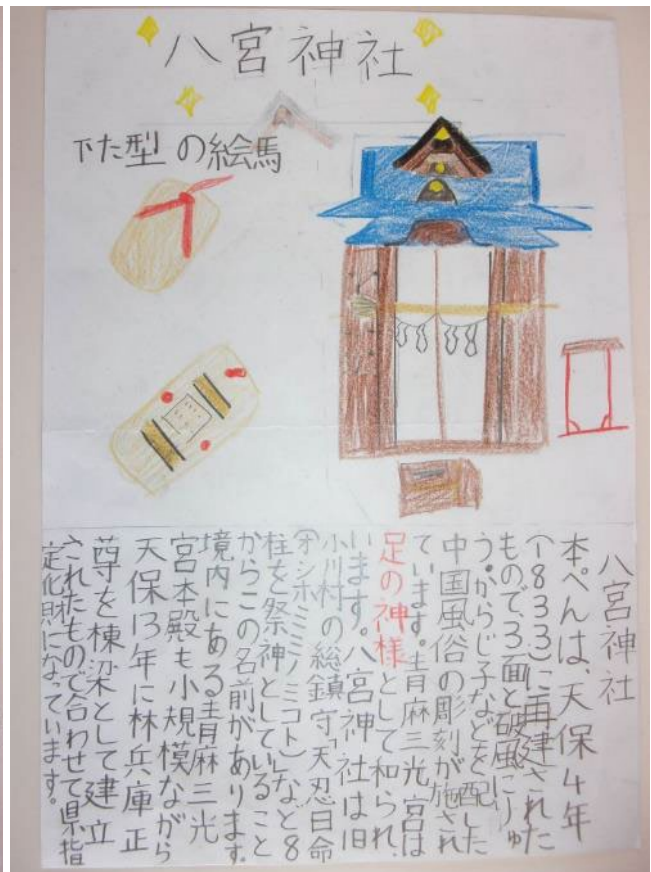 八宮神社
下た型の絵馬
八宮神社
本ぺんは、天保4年
(1833)に再建された
もので3面と破風にりゅ
う。からじ子などを配した
中国風俗の彫刻が施され
ています。青麻三光宮は
足の神様として和られ、
います。八宮神社は旧
小川村の総鎮守「天忍日命
(オシホミミノミコト)など8
柱を祭神としていること
からこの名前があります。
境内にある青麻三光
宮本殿も小規模ながら
天保13年に林兵庫正
尊を棟梁として建立
されたもので合わせて県指
定化財になっています。